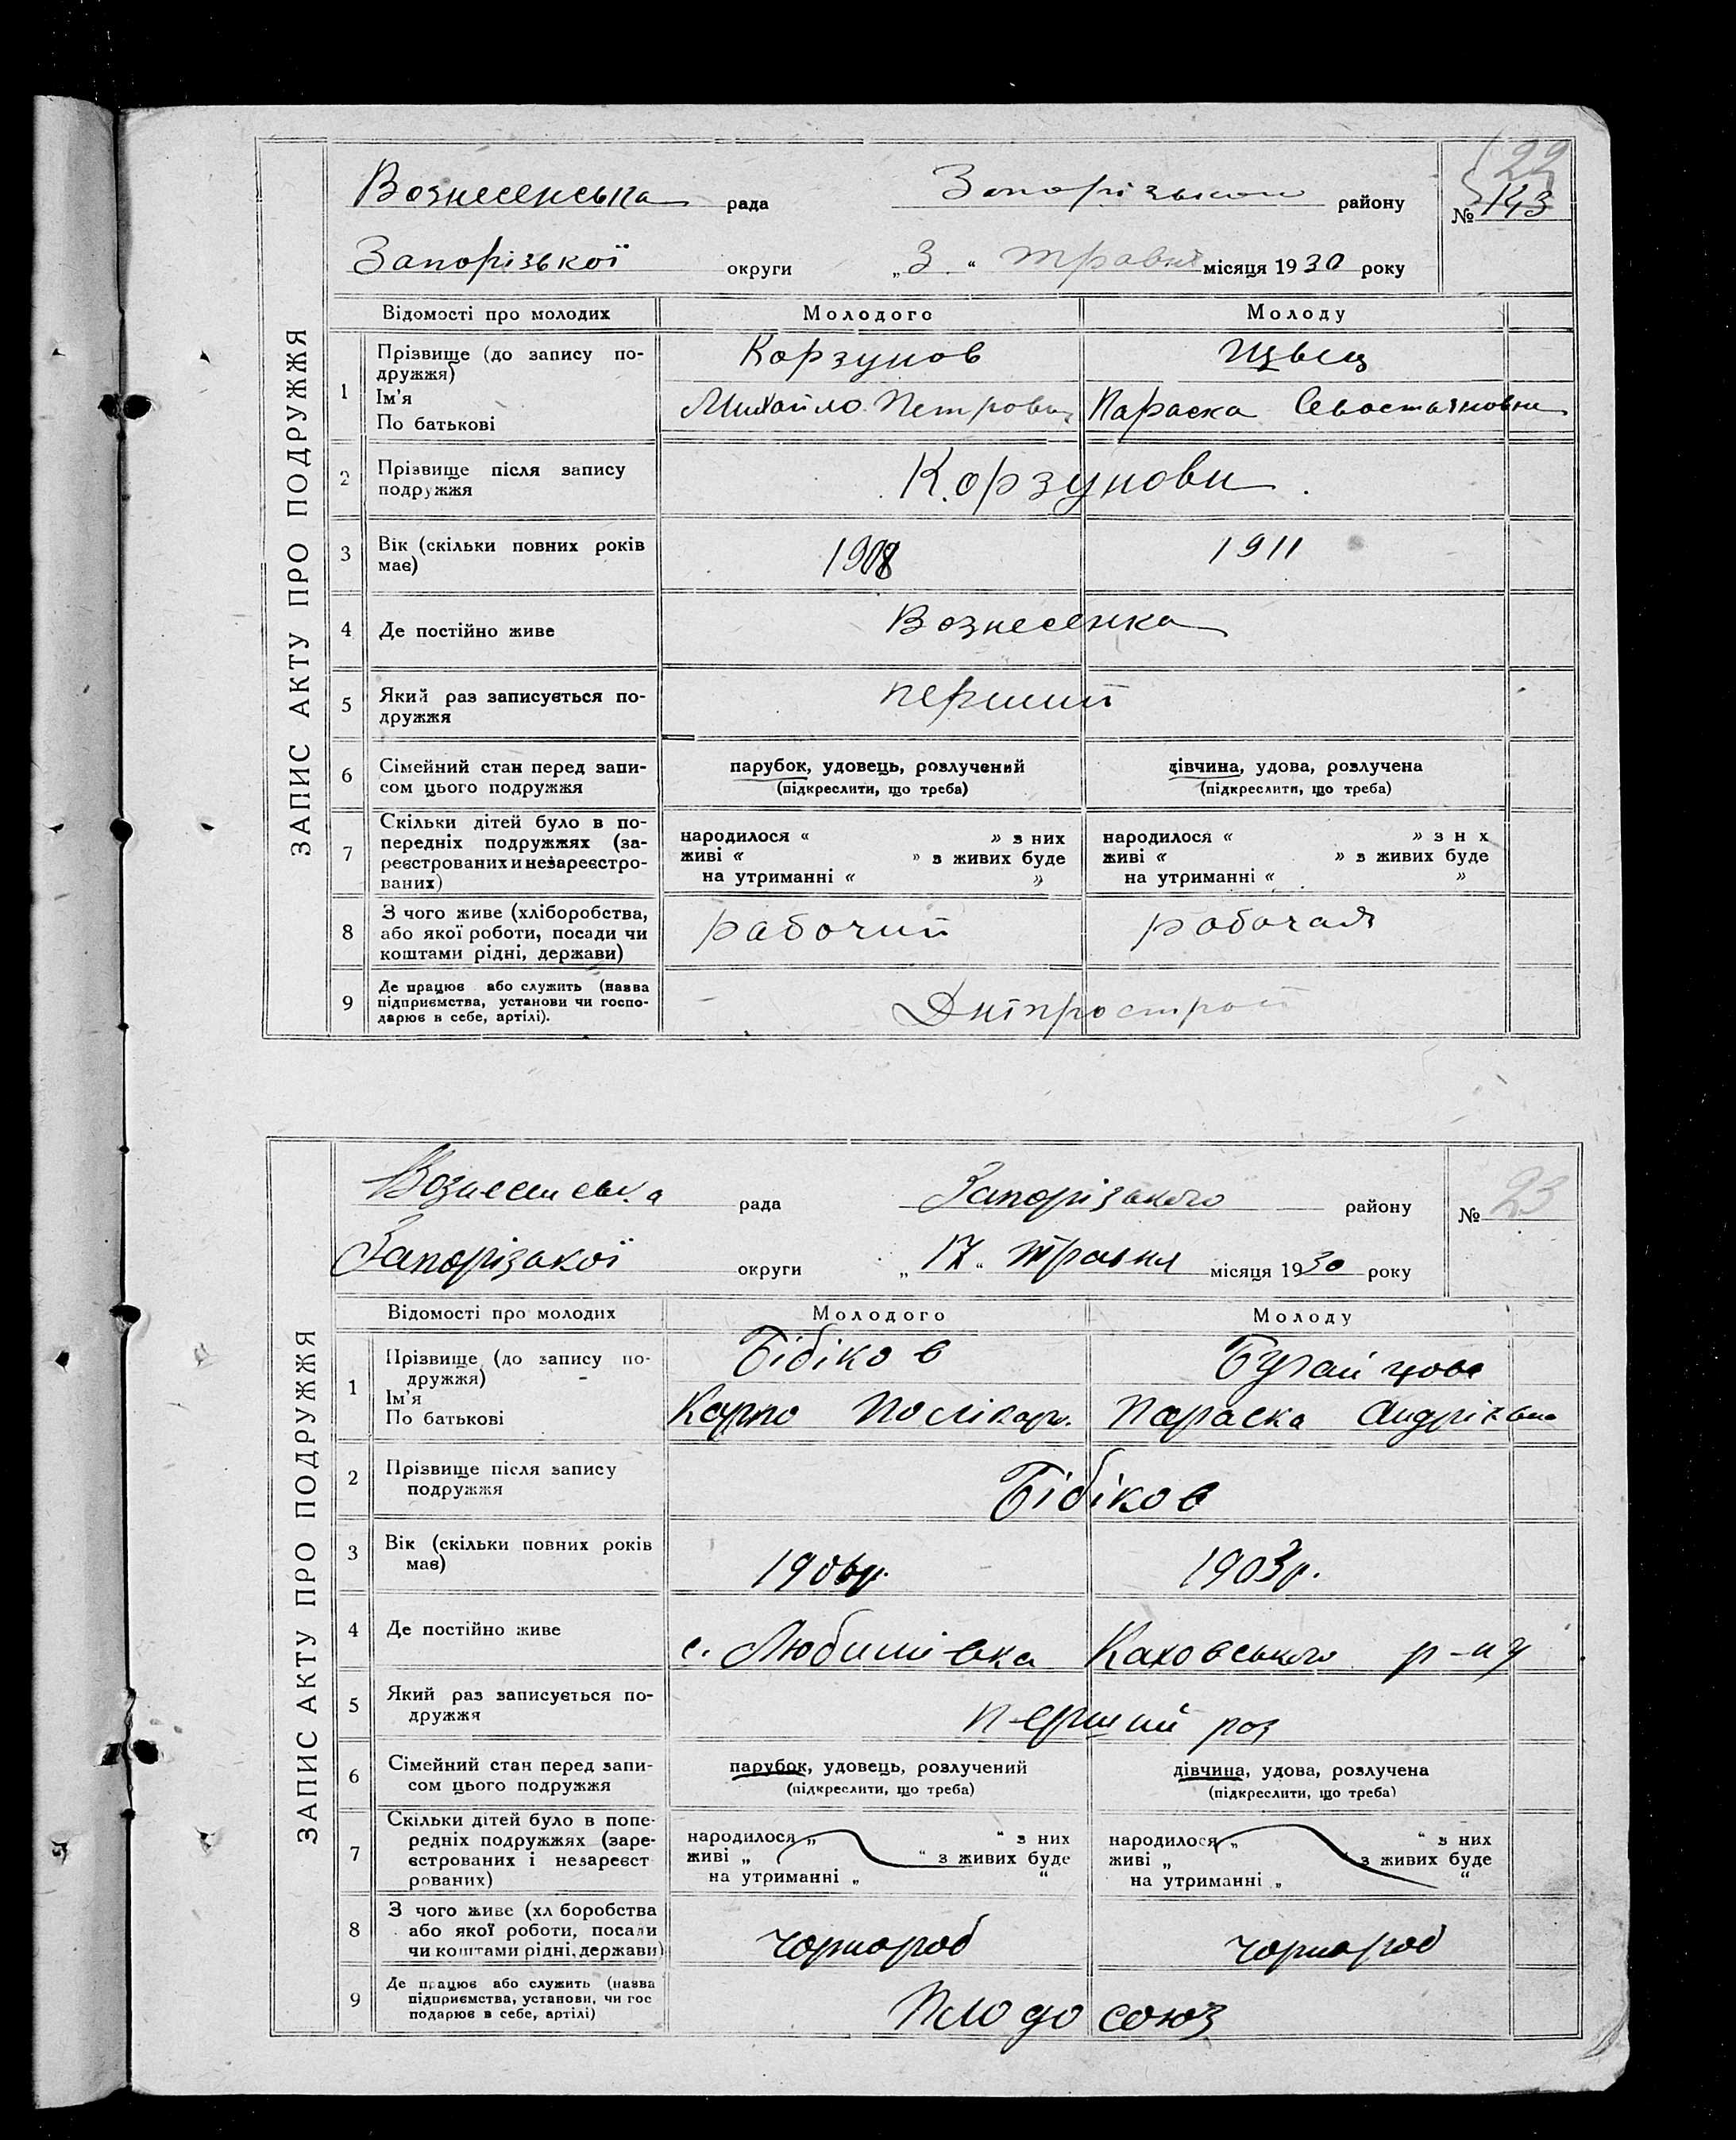 22
Вознесенська рада Запорізької району № 143
Запорізької округи „3“ травня місяця 1930 року
ЗАПИС АКТУ ПРО ПОДРУЖЖЯ
Відомості про молодих Молодого Молоду
1 Прізвище (до запису по-
дружжя)
Ім'я
По батькові
Корзунов
Михайло Петрович Параска Севостяновна
2 Прізвище після запису
подружжя
Корзунови
3 Вік (скільки повних років
має)
1908 1911
4 Де постійно живе Вознесенка
5 Який раз записується по-
дружжя
перший
6 Сімейний стан перед запи-
сом цього подружжя
парубок, удовець, розлучений дівчина, удова, розлучена
(підкреслити, що треба) (підкреслити, що треба)
7 Скільки дітей було в по-
передніх подружжях (за-
реєстрованих и незареєстро-
ваних)
народилося « » з них народилося « » з н х
живі « » з живих буде живі « » з живих буде
на утриманні « » на утриманні « »
8 З чого живе (хліборобства,
або якої роботи, посади чи
коштами рідні, держави)
рабочий рабочая
9 Де працює або служить (назва
підприємства, установи чи госпо-
дарює в себе, артілі).
Дніпрострой
Вознесенська рада Запорізького району № 23
Запорізької округи „17“ травня місяця 1930 року
ЗАПИС АКТУ ПРО ПОДРУЖЖЯ
Відомості про молодих Молодого Молоду
1 Прізвище (до запису по-
дружжя)
Ім'я
По батькові
Бібіков
Карпо Полікарп. Параска Андріївна
2 Прізвище після запису
подружжя
Бібіков
3 Вік (скільки повних років
має)
1906р. 1903р.
4 Де постійно живе с. Любимівка Каховського р-ну
5 Який раз записується по-
дружжя
перший раз
6 Сімейний стан перед запи-
сом цього подружжя
парубок, удовець, розлучений дівчина, удова, розлучена
(підкреслити, що треба) (підкреслити, що треба)
7 Скільки дітей було в попе-
редніх подружжях (заре-
єстрованих і незареєст
рованих)
народилося „ “ з них народилося „ “ з них
живі „ “ з живих буде живі „ з живих буде
на утриманні „ “ на утриманні „ “
8 З чого живе (хл боробства
або якої роботи, посади
чи коштами рідні, держави)
чорнороб чорнороб
9 Де працює або служить (назва
підприємства, установи, чи гос
подарює в себе, артілі)
Плодосоюз